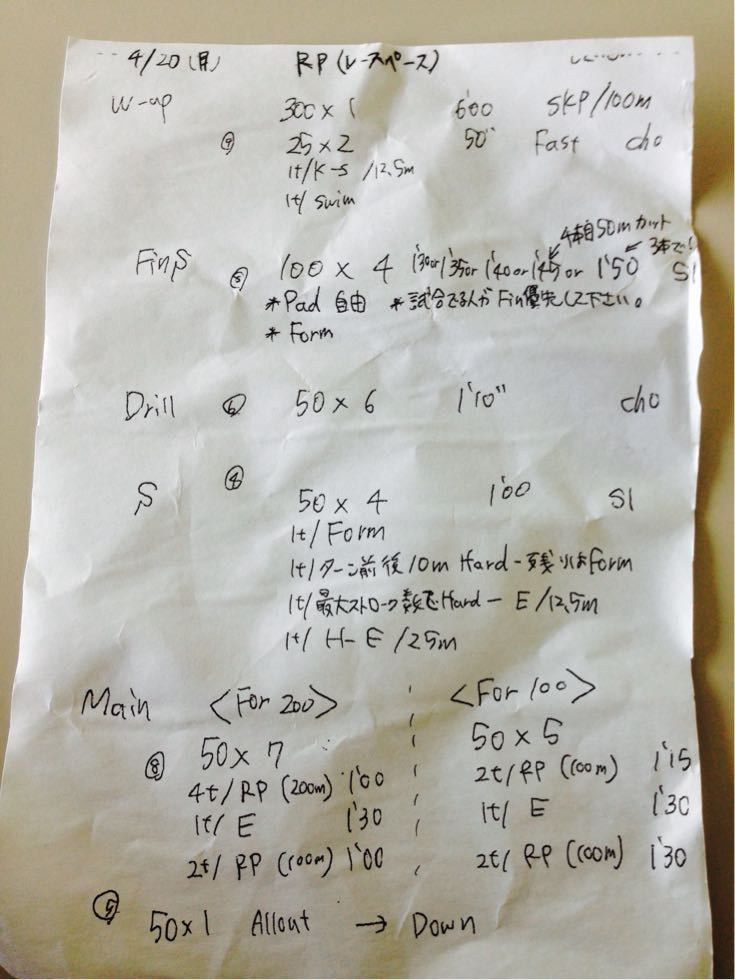 4/20(月) RP(レースペース)
W-up 300×1 6'00 SKP/100m
25×2 50" Fast cho
1t/K-S /12.5m
1t/ swim
4本目50mカット
FinS ⑧ 100×4 1'30or1'35or1'40or1'45or 1'50 3本で S1
*Pad 自由 *試合でる人がFin優先して下さい。
*Form
Drill ⑥ 50×6 1'10" cho
S ④ 50×4 1'00 S1
1t/Form
1t/ターン前後10m Hard-残りはForm
1t/最大ストローク数でHard-E/12.5m
1t/ H-E/25m
Main <For 200> <For 100>
⑧ 50×7 50×5
4t/RP(200m) 1'00 2t/RP(100m) 1'15
1t/E 1'30 1t/E 1'30
2t/RP(100m) 1'00 2t/RP(100m) 1'30
⑤ 50×1 Allout → Down